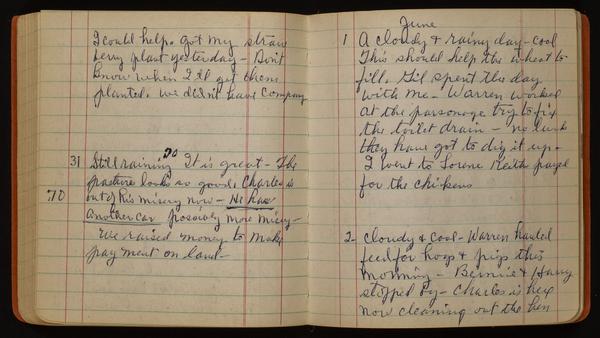 I could help. Got my straw
berry plant yesterday - Don't
know when I'll get them
planted. We didn't have company
31 Still raining 70 It is great - The
pasture looks so good. Charles is
70 out of his misery now - He has
another car possibly more misery -
We raised money to make
payment on land -
June
1 A cloudy & rainy day - cool
This should help the wheat to
fill. Gil spent the day
with me - Warren worked
at the parsonage try to fix
the toilet drain - no luck
they have got to dig it up -
I went to Lorene Keith
for the chickens
2 - Cloudy & cool - Warren hauled
feed for hogs & pigs this
morning - Bernie & Harry
stopped by - Charles is here
now cleaning out the hen